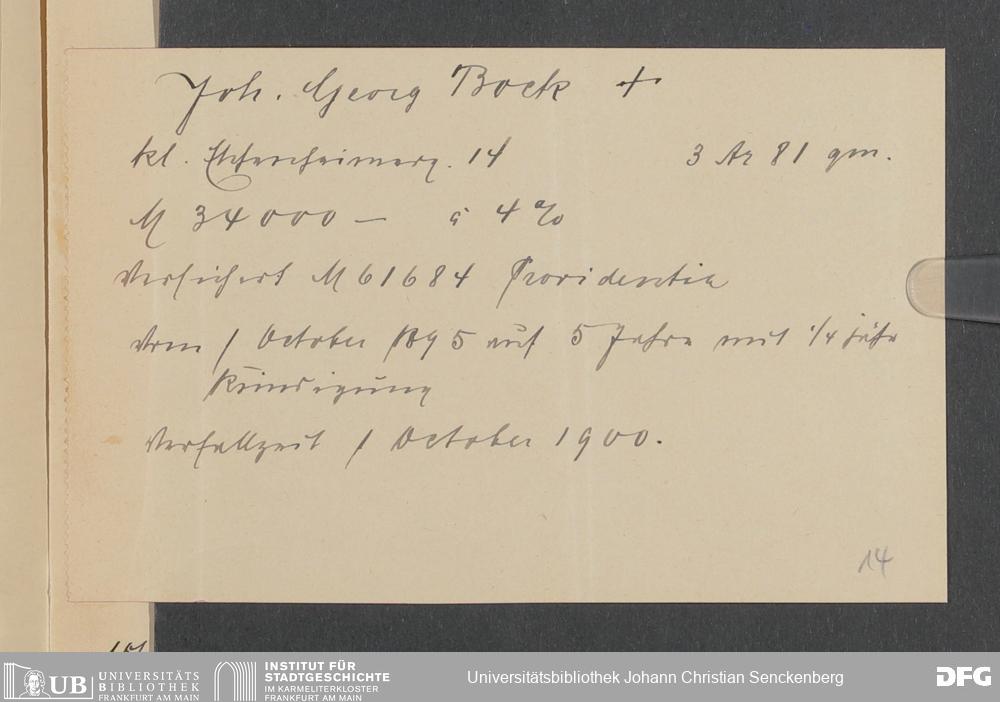 Joh. Georg Bock +
kl. Eschenheimerg. 14 3 Ar 81 qm.
M 34000 — à 4 %
Versichert M 61684 Providentia
vom 1 October 1895 auf 5 Jahre mit 1/4 jähr
Kündigung
Verfallzeit 1 October 1900.
14
UB UNIVERSITÄTS
BIBLIOTHEK
FRANKFURT AM MAIN
INSTITUT FÜR
STADTGESCHICHTE
IM KARMELITERKLOSTER
FRANKFURT AM MAIN
Universitätsbibliothek Johann Christian Senckenberg
DFG